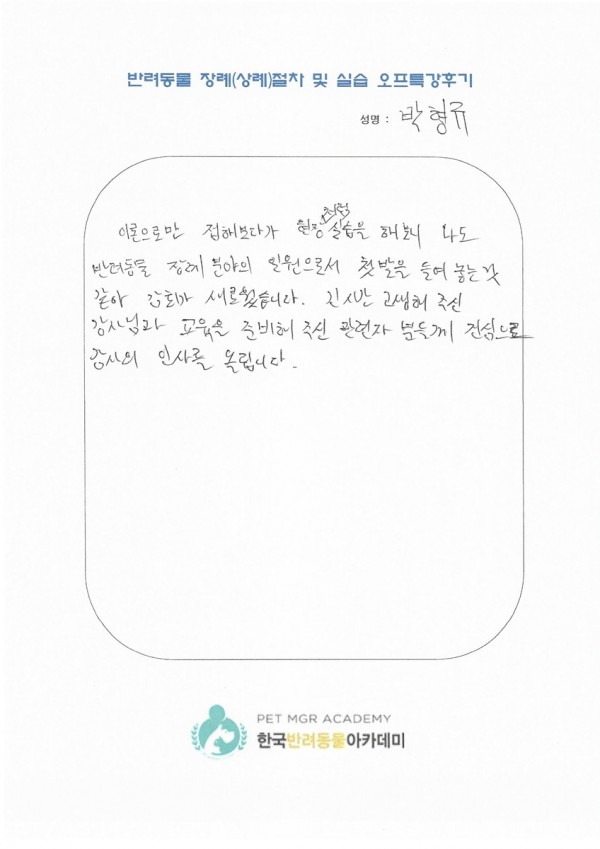 반려동물 장례(상례)절차 및 실습 오프특강후기
성명 : 박형규
이론으로만 접해보다가 현장처럼 실습을 해보니 나도
반려동물 장례 분야의 일원으로서 첫발을 들여 놓는것
같아 감회가 새로웠습니다. 긴시간 고생해 주신
강사님과 교육을 준비해 주신 관련자 분들께 진심으로
감사의 인사를 올립니다.
PET MGR ACADEMY
한국반려동물아카데미